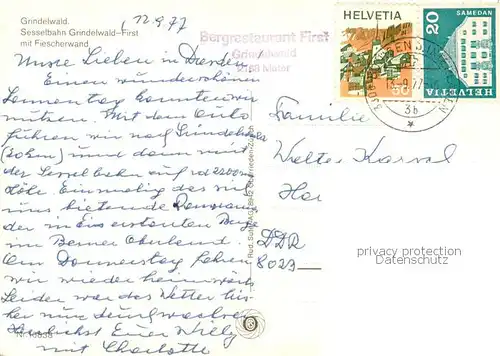 Grindelwald.
Sesselbahn Grindelwald-First
mit Fiescherwand.
12.9.77
Bergrestaurant First
Grindelwald
HELVETIA
30
20
SAMEDAN
HELVETIA
3b
Unsere Lieben in Dresden
Einen wunderschönen
Sonnentag konnten wir
nützen. Mit dem Auto
fuhren wir nach Grindelwald
(20 km) und dann mit
der Sesselbahn auf rd 2200 m
Höhe. Einmalig das sich
uns bietende Panorama
der in Eis erstarrten Berge
im Berner Oberland.
Am Donnerstag fahren
wir wieder heimwärts
Leider war das Wetter bis-
her nur durchwachsen
Herzlichst Eure Willy
mit Charlotte
Familie
Walter
DDR
8029
privacy protection
Datenschutz